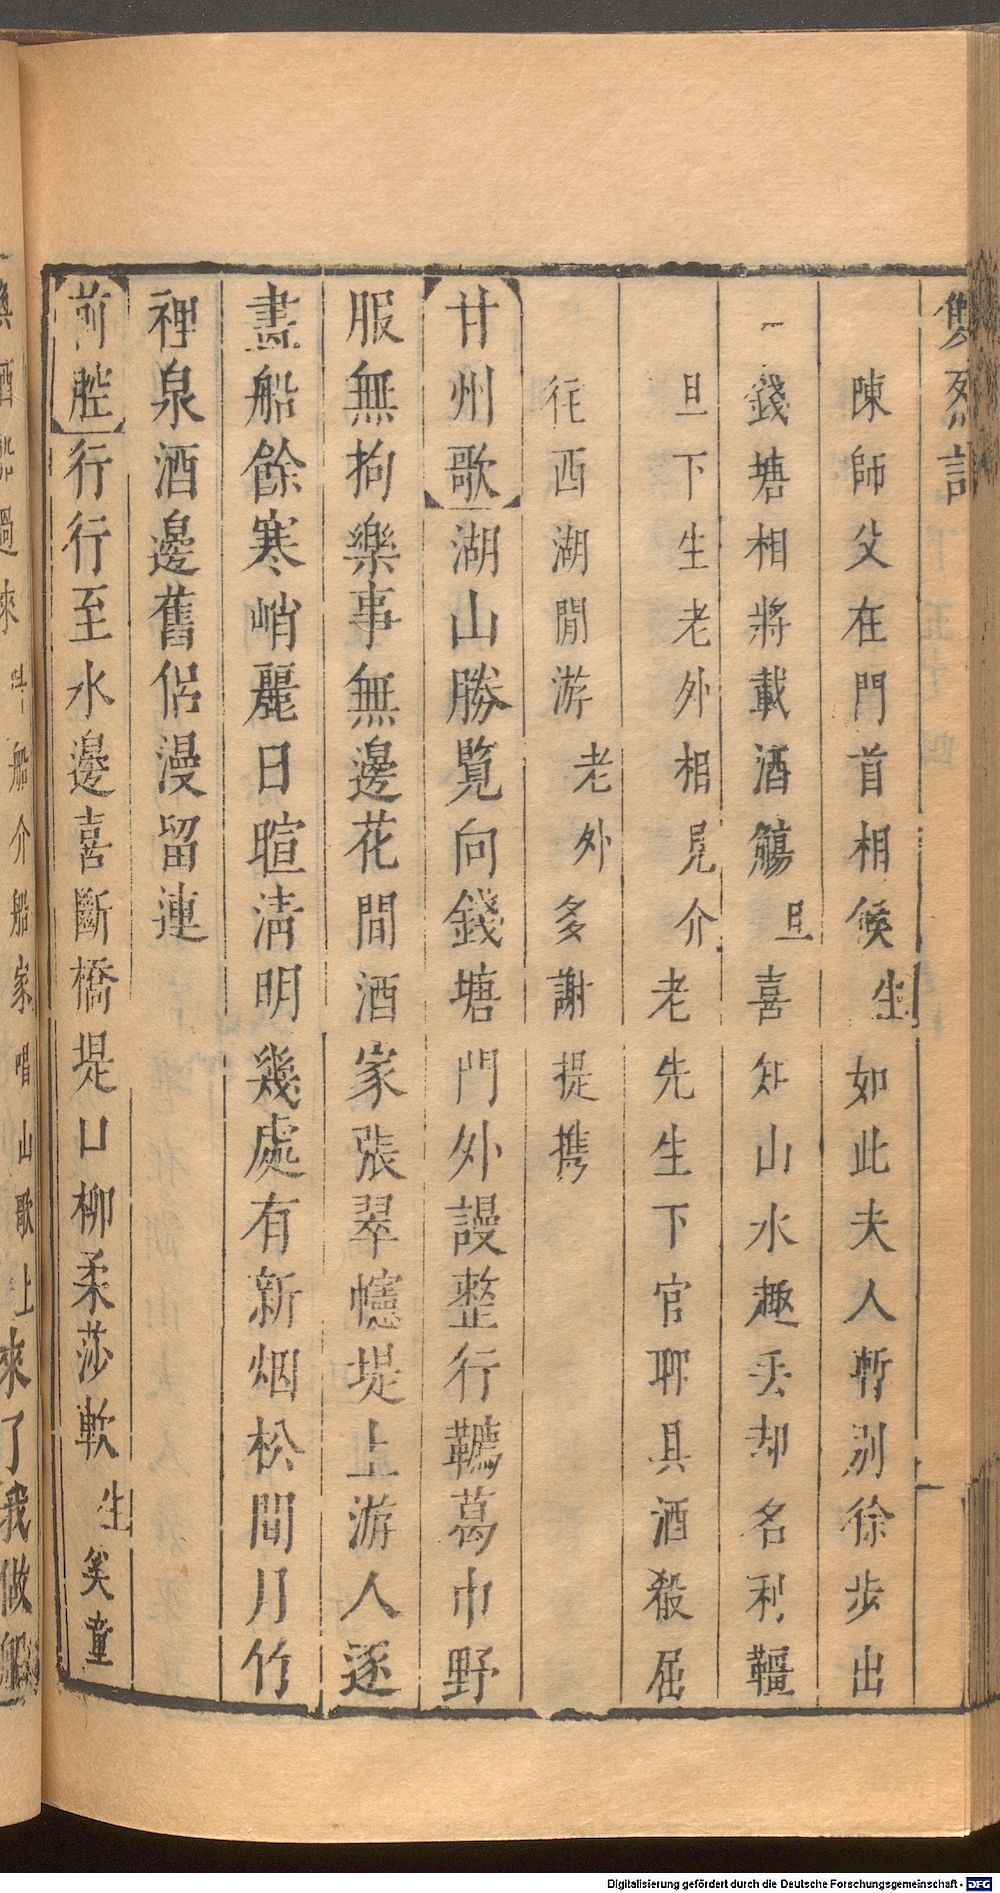 雙烈記
陳師父在門首相候生如此夫人暫別徐步出
錢塘相將載酒觴旦喜知山水趣丢却名利韁
旦下生老外相見介老先生下官聊具酒殽屈
往西湖閒游老外多謝提携
甘州歌湖山勝覧向錢塘門外謾整行韉葛巾野
服無拘樂事無邊花間酒家張翠幰堤上游人逐
畫船餘寒峭麗日暄清明幾處有新烟松間月竹
裡泉酒邊舊侣漫留連
前腔行行至水邊喜斷橋堤口柳柔莎軟生奚童
酒船過來船介船家唱山歌上來了我做船
Digitalisierung gefördert durch die Deutsche Forschungsgemeinschaft - DFG